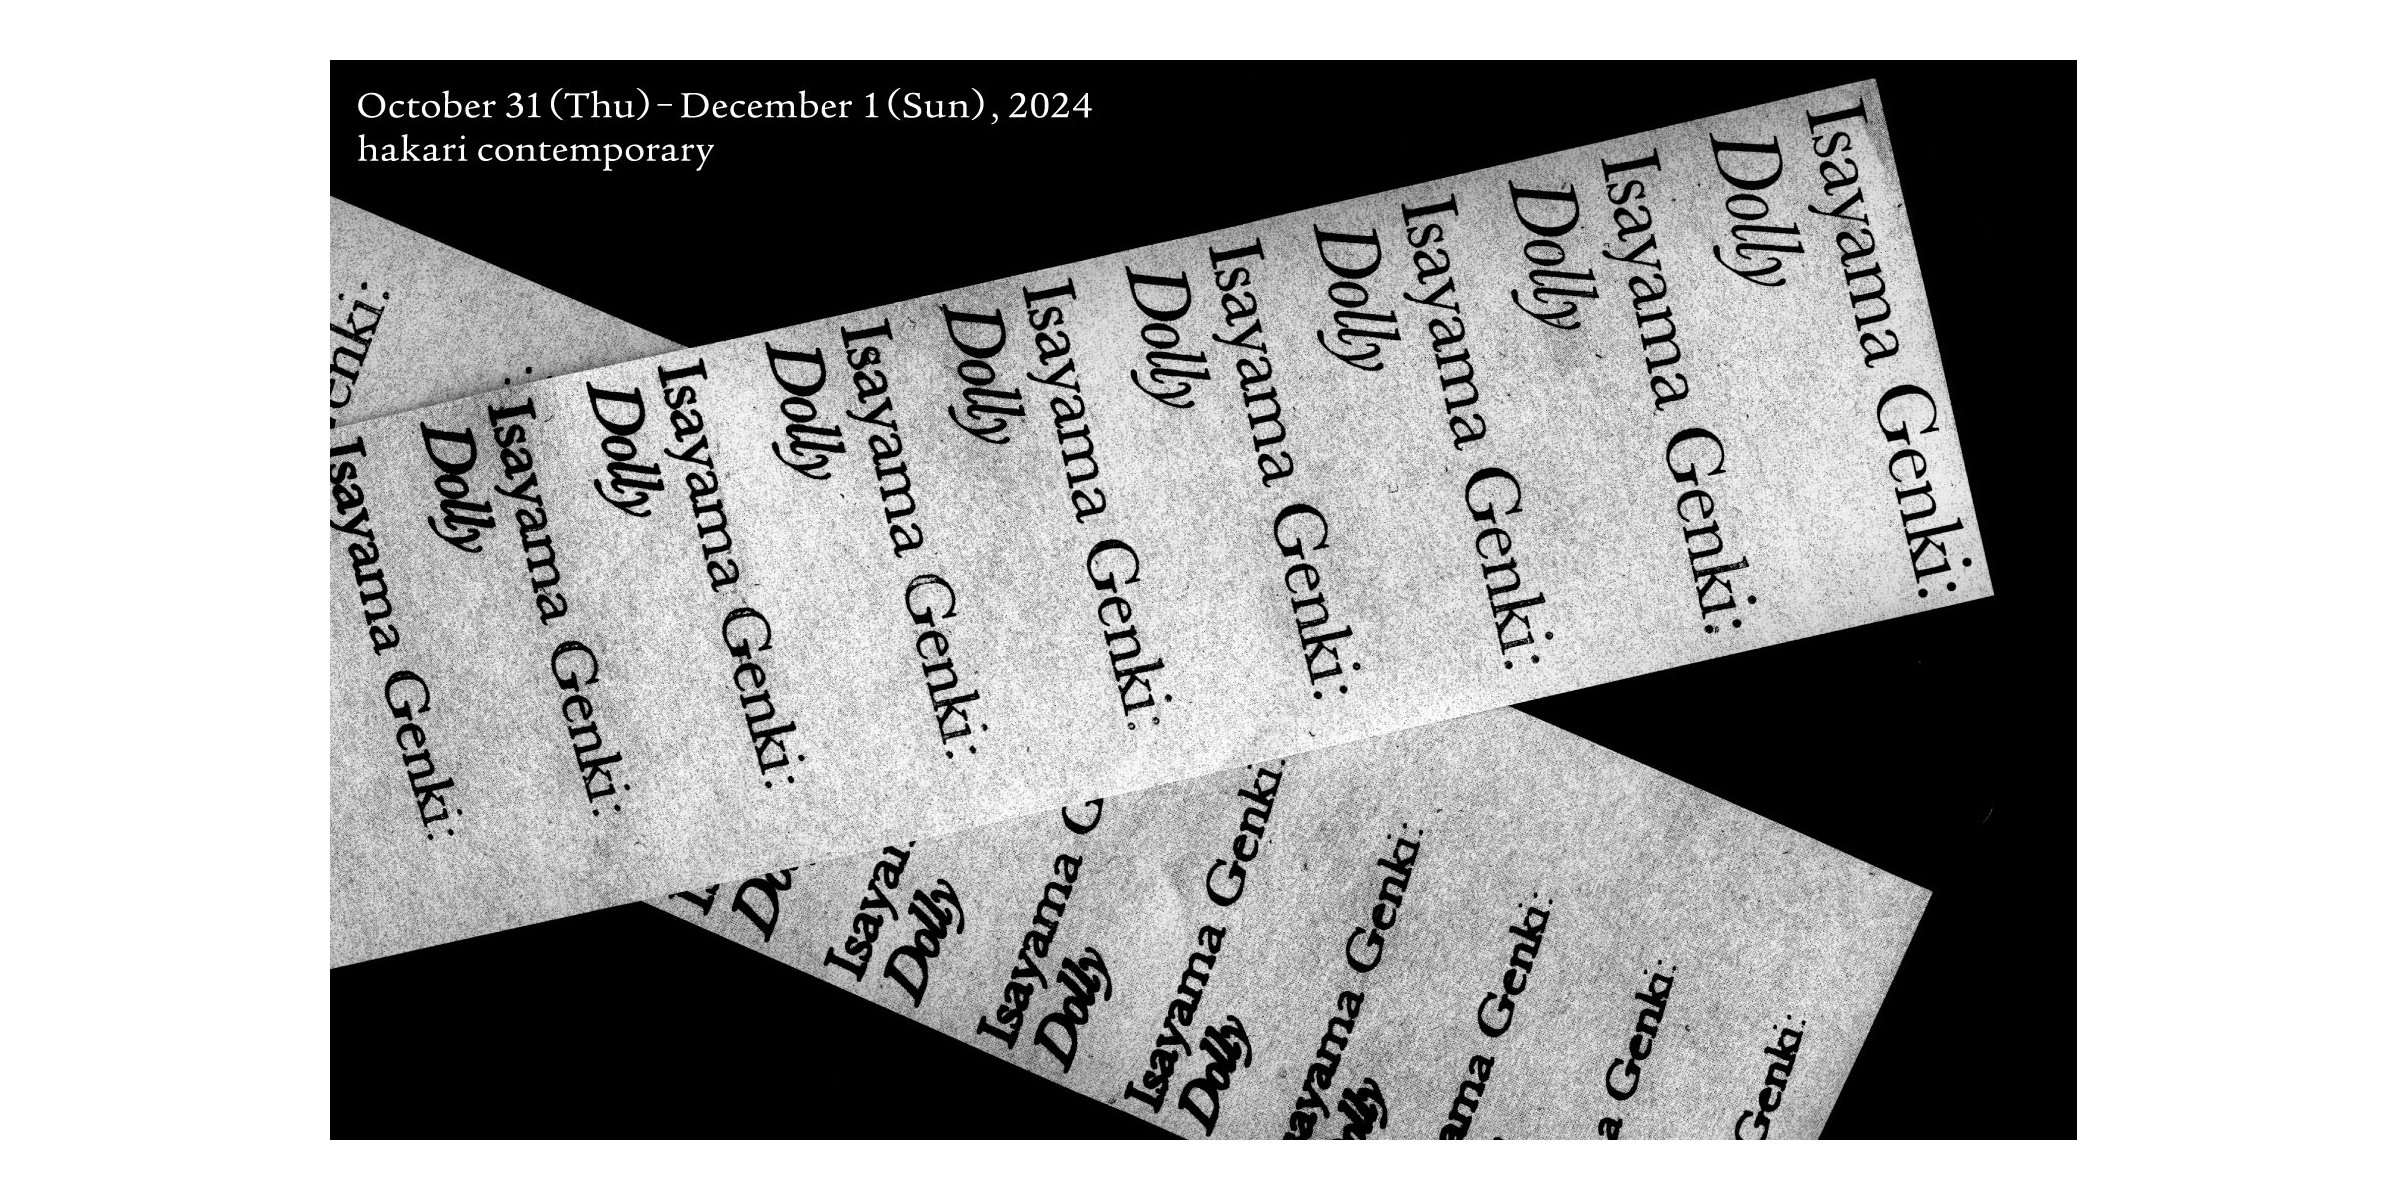 October 31 (Thu) – December 1 (Sun), 2024
hakari contemporary
Isayama Genki:
Dolly
Isayama Genki:
Dolly
Isayama Genki:
Dolly
Isayama Genki:
Dolly
Isayama Genki:
Dolly
Isayama Genki:
Dolly
Isayama Genki:
Dolly
Isayama Genki:
Dolly
Isayama Genki:
enki:
Do
Isaya
Dolly
Isayama G
Dolly
Isayama Genki:
Dolly
ayama Genki:
olly
ama Genki:
a Genki:
Genki: